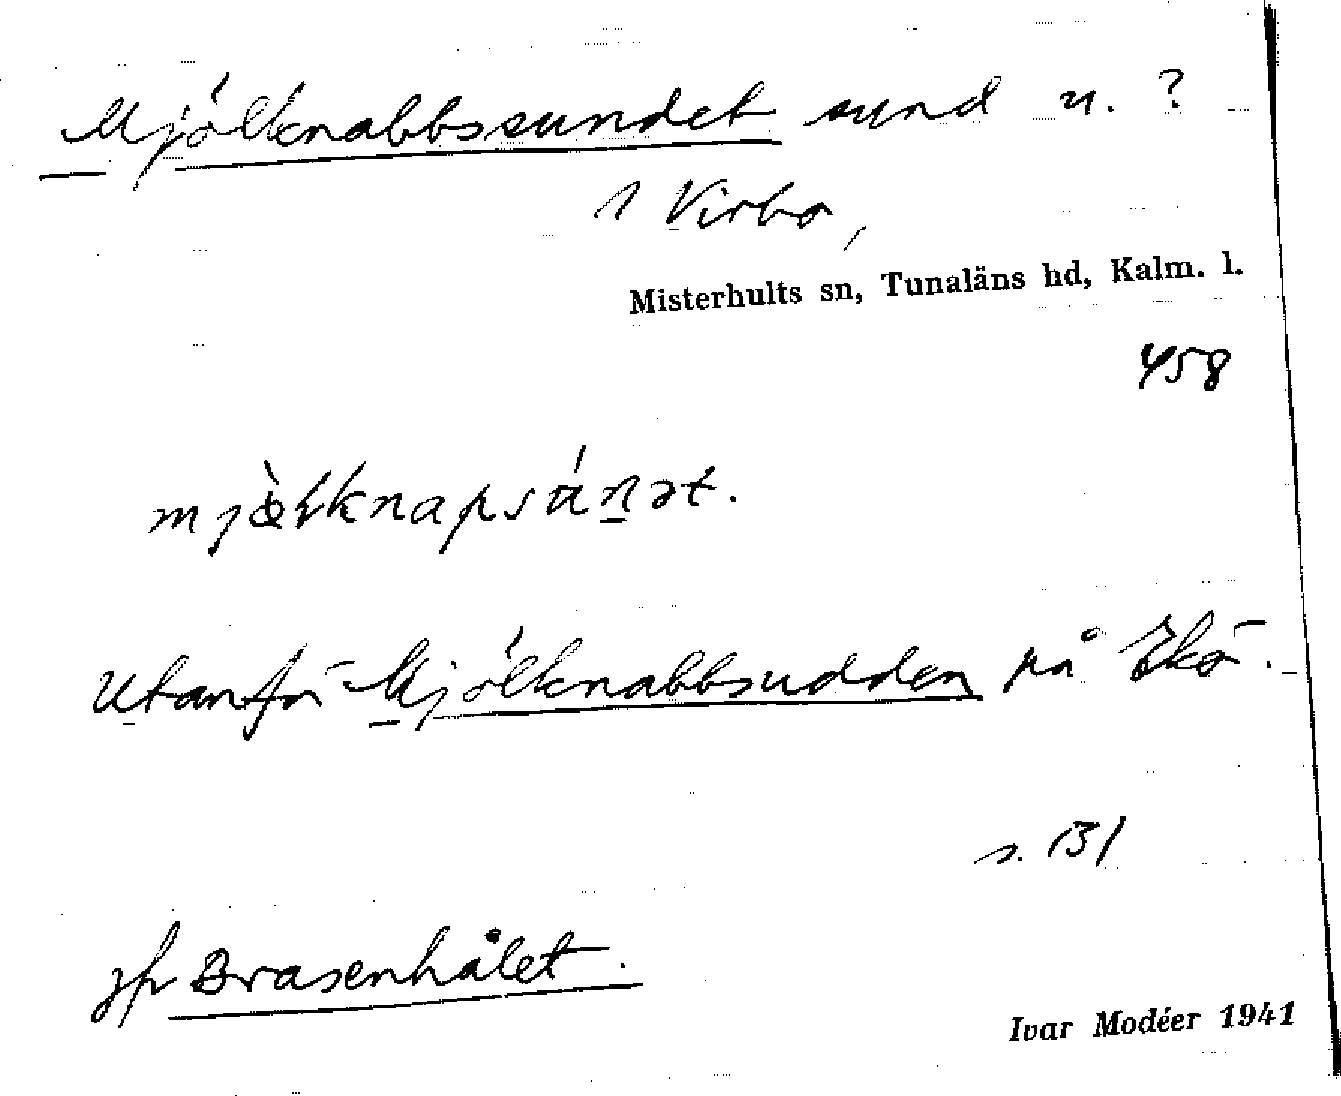 Mjölknabbssundet sund u. ?
1 Virbo,
Misterhults sn, Tunaläns hd, Kalm. l.
458
Utanför Mjölknabbsudden på Ekö.
s. 131
jfr Brasenhålet.
Ivar Modéer 1941